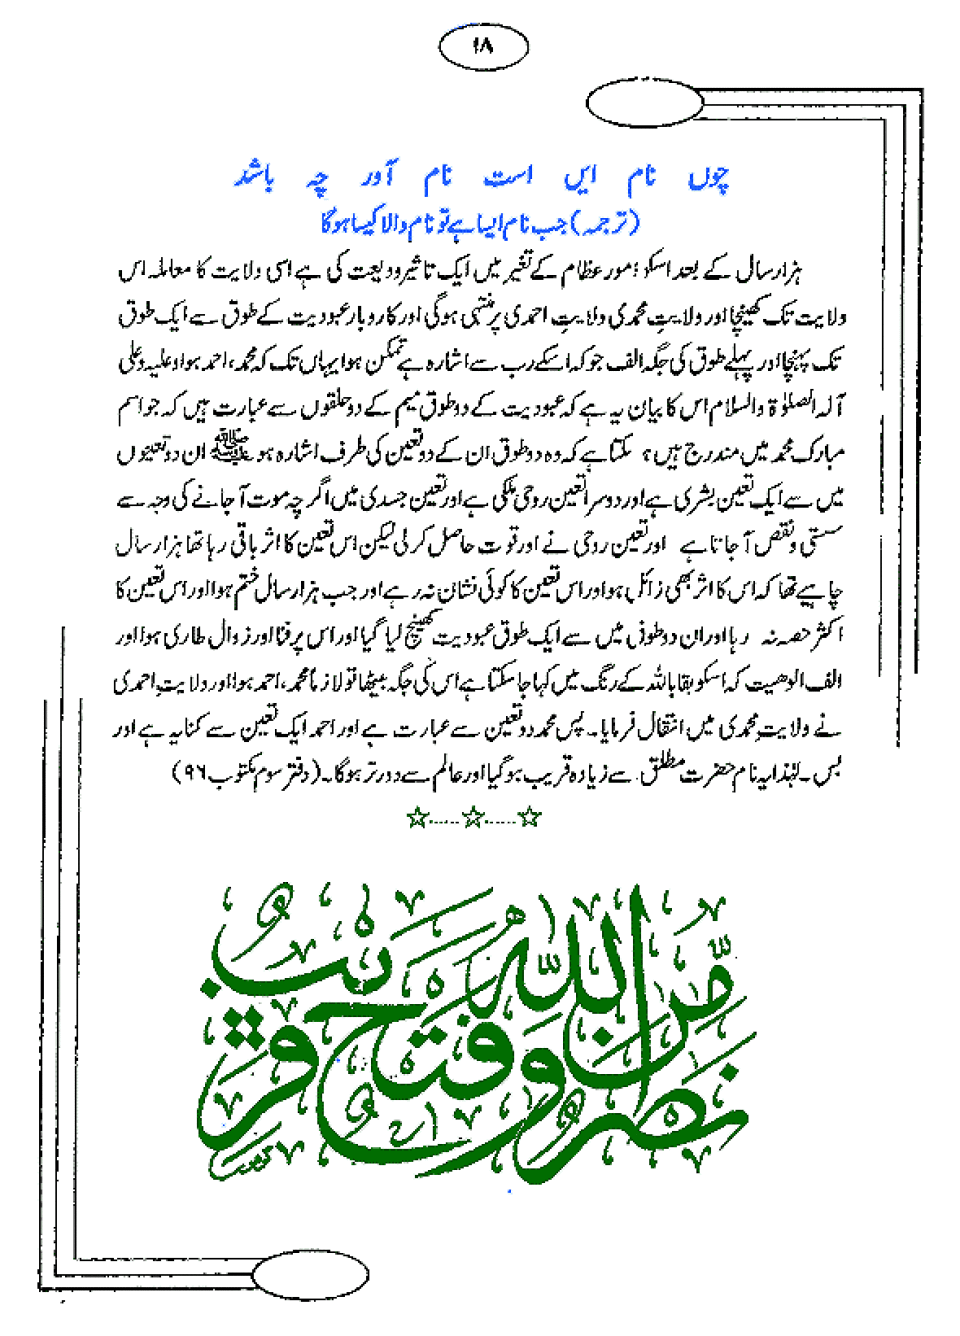 ۱۸
چوں نام ایں است نام آور چہ باشد
(ترجمہ) جب نام ایسا ہے تو نام والا کیسا ہوگا
ہزار سال کے بعد اسکو امور عظام کے تغیر میں ایک تاثیر ودیعت کی ہے اسی ولایت کا معاملہ اس
ولایت تک کھینچا اور ولایتِ محمدی ولایتِ احمدی پر منتہی ہوگی اور کاروبار عبودیت کے طوق سے ایک طوق
تک پہنچا اور پہلے طوق کی جگہ الف جو کہ اسکے رب سے اشارہ ہے متمکن ہوا یہاں تک کہ محمد، احمد ہوا وعلیہ وعلی
آلہ الصلوٰۃ والسلام اس کا بیان یہ ہے کہ عبودیت کے دو طوق میم کے دو حلقوں سے عبارت ہیں کہ جو اسم
مبارک محمد میں مندرج ہیں؟ سکتا ہے کہ وہ دو طوق ان کے دو تعین کی طرف اشارہ ہو ﷺ ان دو تعینوں
میں سے ایک تعین بشری ہے اور دوسرا تعین روحی ملکی ہے اور تعین جسدی میں اگرچہ موت آجانے کی وجہ سے
سستی ونقص آجاتا ہے اور تعین روحی نے اور قوت حاصل کرلی لیکن اس تعین کا اثر باقی رہا تھا ہزار سال
چاہیے تھا کہ اس کا اثر بھی زائل ہو اور اس تعین کا کوئی نشان نہ رہے اور جب ہزار سال ختم ہوا اور اس تعین کا
اکثر حصہ نہ رہا اور ان دو طوق میں سے ایک طوق عبودیت کھینچ لیا گیا اور اس پر فنا اور زوال طاری ہوا اور
الف الوھیت کہ اسکو بقا باللہ کے رنگ میں کہا جاسکتا ہے اس کی جگہ بیٹھا تو لازماً محمد، احمد ہوا اور ولایتِ احمدی
نے ولایتِ محمدی میں انتقال فرمایا۔ پس محمد دو تعین سے عبارت ہے اور احمد ایک تعین سے کنایہ ہے اور
بس۔ لہٰذا یہ نام حضرت مطلق سے زیادہ قریب ہوگیا اور عالم سے دور تر ہوگا۔ (دفتر سوم مکتوب ۹۶)
نصر من اللہ وفتح قریب